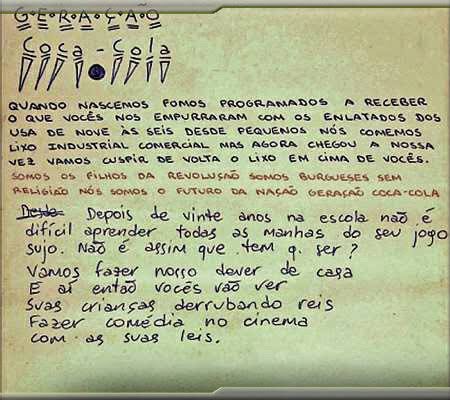 G•E•R•A•Ç•ÃO
Coca-Cola
QUANDO NASCEMOS FOMOS PROGRAMADOS A RECEBER
O QUE VOCÊS NOS EMPURRARAM COM OS ENLATADOS DOS
USA DE NOVE ÀS SEIS DESDE PEQUENOS NÓS COMEMOS
LIXO INDUSTRIAL COMERCIAL MAS AGORA CHEGOU A NOSSA
VEZ VAMOS CUSPIR DE VOLTA O LIXO EM CIMA DE VOCÊS.
SOMOS OS FILHOS DA REVOLUÇÃO SOMOS BURGUESES SEM
RELIGIÃO NÓS SOMOS O FUTURO DA NAÇÃO GERAÇÃO COCA-COLA
Desde Depois de vinte anos na escola não é
difícil aprender todas as manhas do seu jogo
sujo. Não é assim que tem q. ser?
Vamos fazer nosso dever de casa
E aí então vocês vão ver
Suas crianças derrubando reis
Fazer comédia no cinema
com as suas leis.